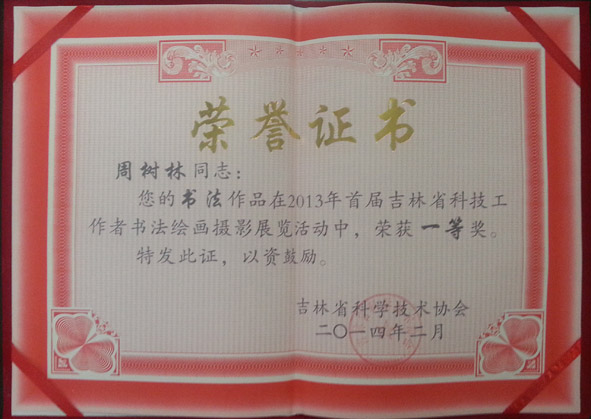 荣誉证书
周树林同志：
您的书法作品在2013年首届吉林省科技工
作者书法绘画摄影展览活动中，荣获一等奖。
特发此证，以资鼓励。
吉林省科学技术协会
二〇一四年二月